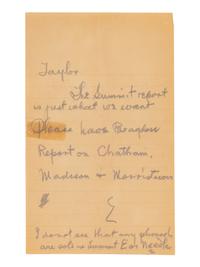 Taylor
The Summit report
is just what we want
Please have Braglow
Report on Chatham,
Madison & Morristown
E
I do not see that any phonogh
are sold in Summit E or Newark